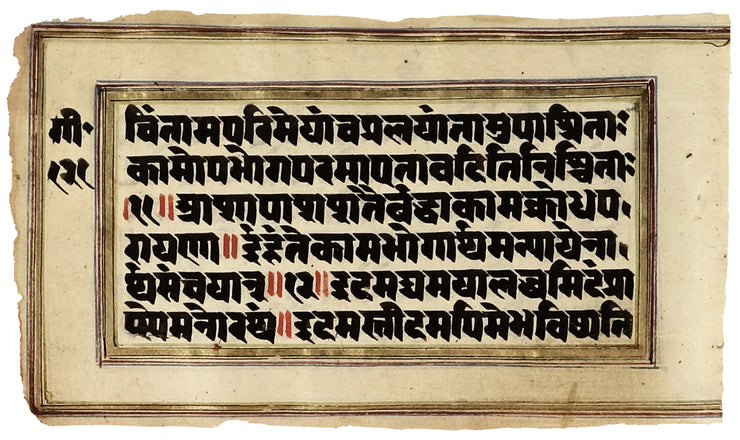 गी॰
१२९
चिंतामपरिमेयांचप्रलयांतामुपाश्रिताः
कामोपभोगपरमाएतावदितिनिश्चिताः
॥११॥आशापाशशतैर्बद्धाकामक्रोधप॰
रायणा॥ईहंतेकामभोगार्थमन्यायेना॰
र्थसंचयान्॥१२॥इदमद्यमयालब्धमिदंप्रा
प्स्येमनोरथं॥इदमस्तीदमपिमेभविष्यति